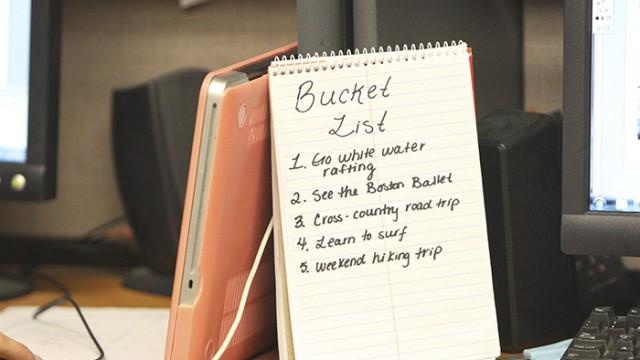 Bucket
List
1. Go white water
rafting
2. See the Boston Ballet
3. Cross-country road trip
4. Learn to surf
5. Weekend hiking trip